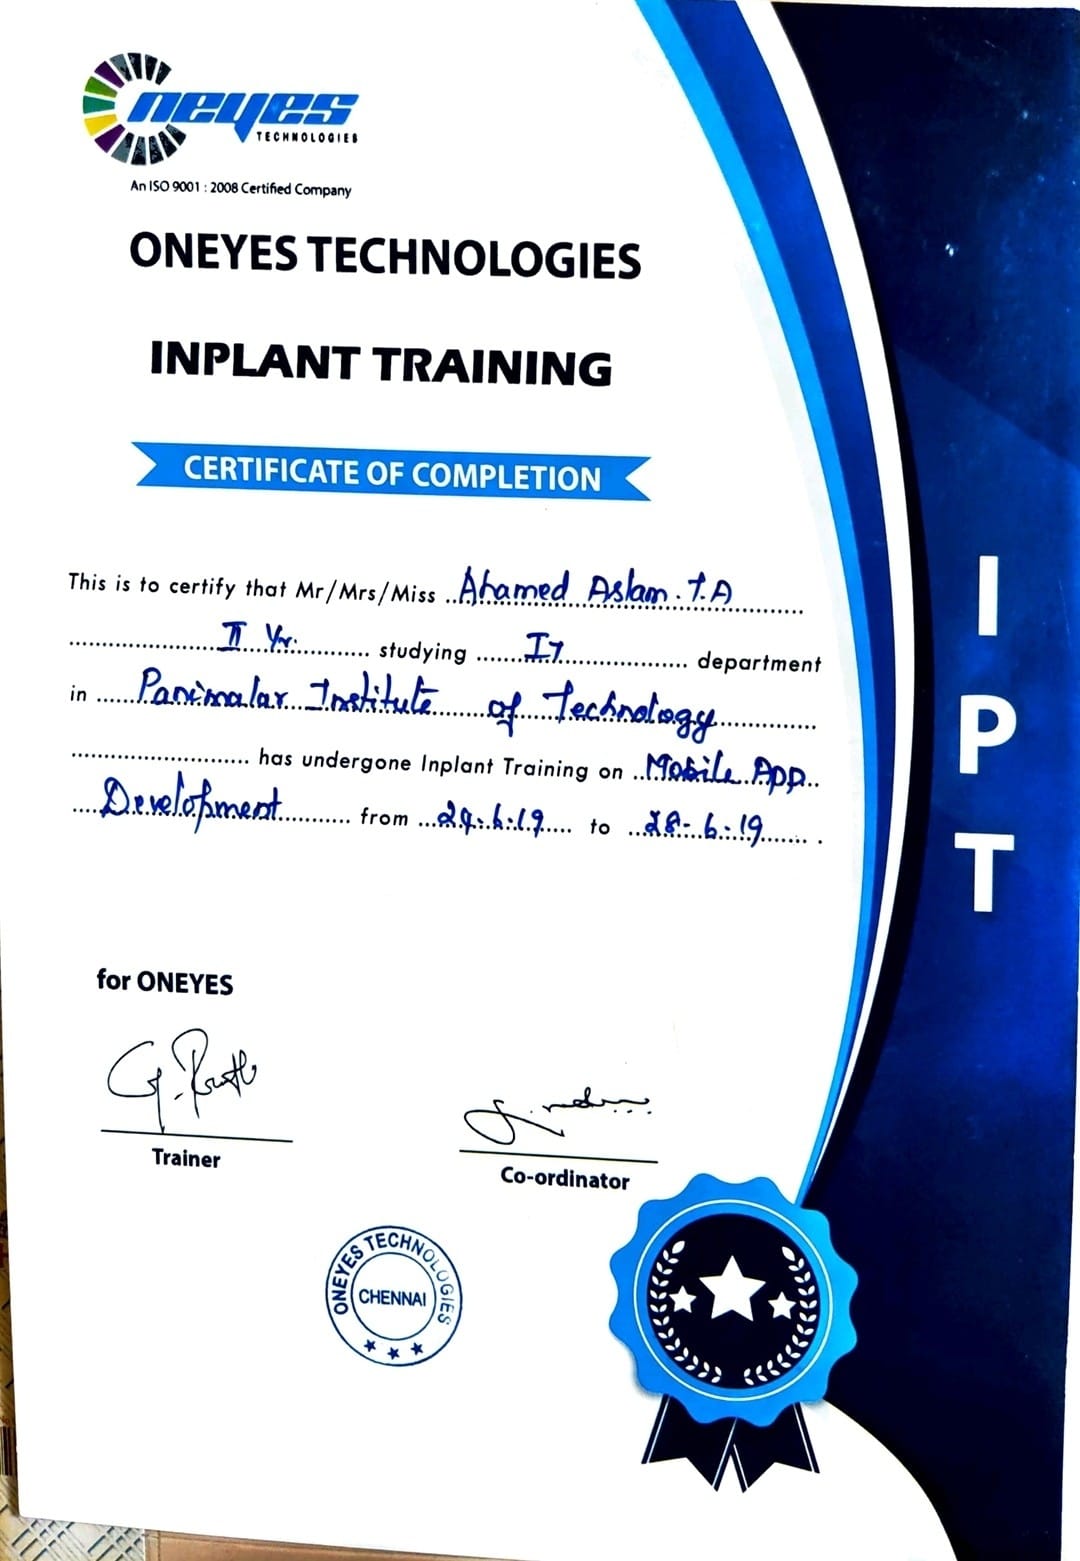 Oneyes
TECHNOLOGIES
An ISO 9001 : 2008 Certified Company
ONEYES TECHNOLOGIES
INPLANT TRAINING
CERTIFICATE OF COMPLETION
This is to certify that Mr/Mrs/Miss Ahamed Aslam. T.A
II Yr. studying IT department
in Panimalar Institute of Technology
has undergone Inplant Training on Mobile App
Development from 24.6.19 to 28-6-19 .
for ONEYES
Trainer
Co-ordinator
ONEYES TECHNOLOGIES
CHENNAI
I
P
T